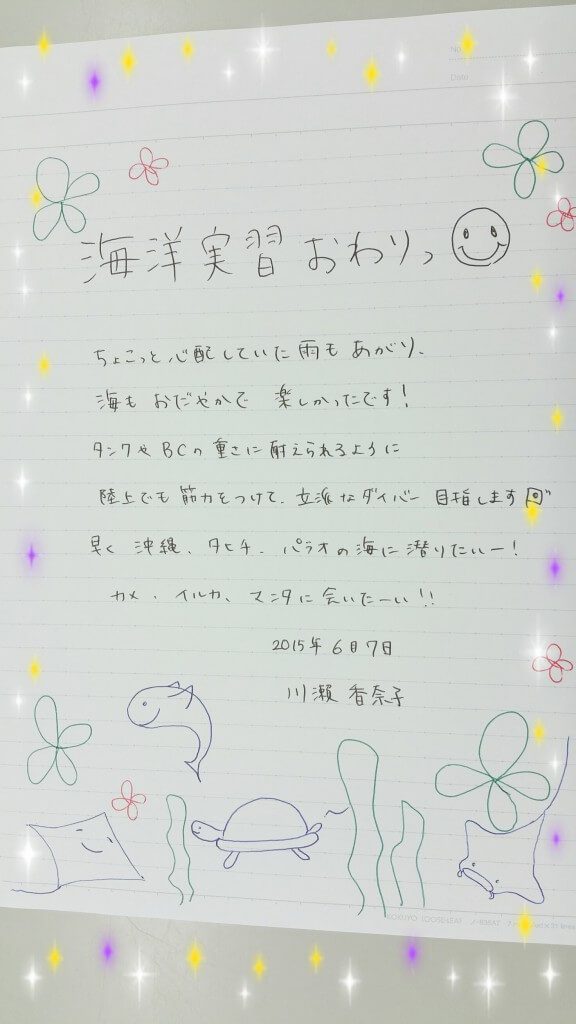 No.
Date
海洋実習おわりっ
ちょこっと心配していた雨もあがり、
海もおだやかで 楽しかったです！
タンクやBCの重さに耐えられるように
陸上でも筋力をつけて、立派なダイバー目指します
早く沖縄、タヒチ、パラオの海に潜りたいー！
カメ、イルカ、マンタに会いたーい!!
2015年6月7日
川瀬 香奈子
KOKUYO LOOSE-LEAF